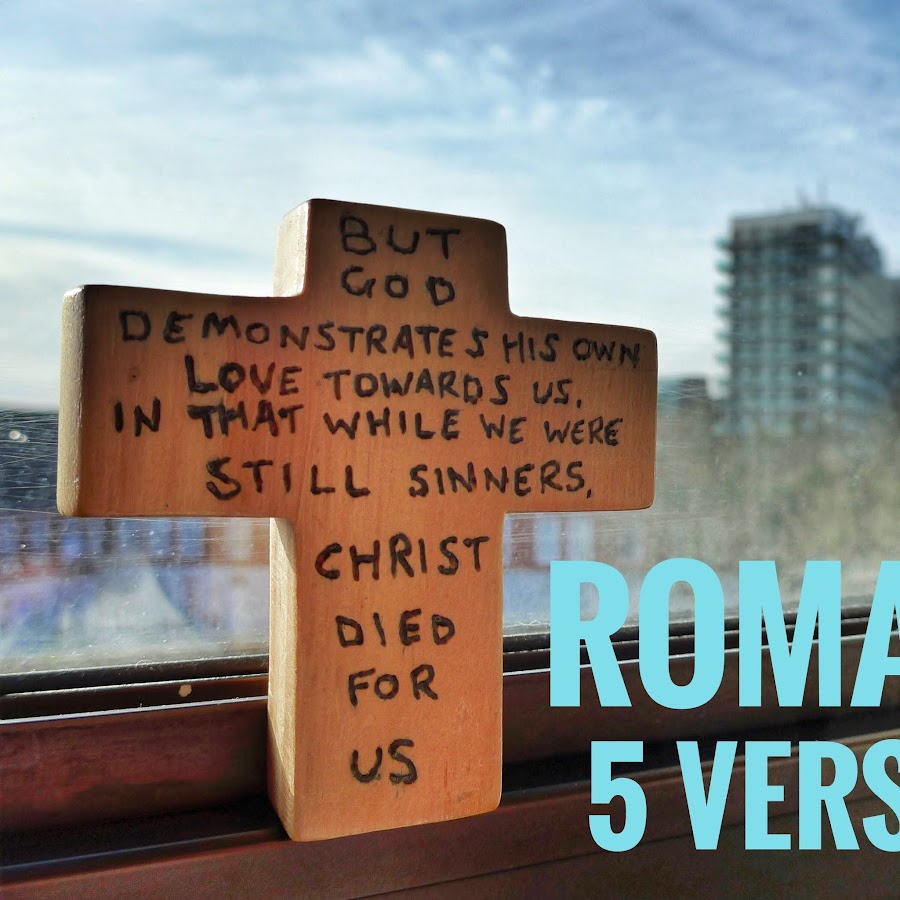 BUT
GOD
DEMONSTRATES HIS OWN
LOVE TOWARDS US,
IN THAT WHILE WE WERE
STILL SINNERS,
CHRIST
DIED
FOR
US
ROMA
5 VERS